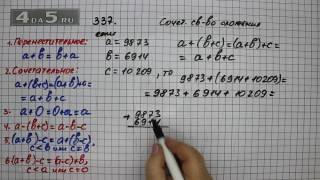 4ДА5
RU
337.
Сочет. св-во сложения
если
1. Переместительное:
a+b = b+a
2. Сочетательное:
a+(b+c)=(a+b)+c=
= a+b+c
3. a+0=0+a=a
4. a-(b+c)=a-b-c
5. (a+b)-c=a+(b-c)
c<b или c=b.
6. (a+b)-c=(a-c)+b,
c<a или c=a.
a = 9873
b = 6914
c = 10 209, то
a+(b+c)=(a+b)+c=
= a+b+c
9873+(6914+10209)=
= 9873 + 6914 + 10209 =
+ 9873